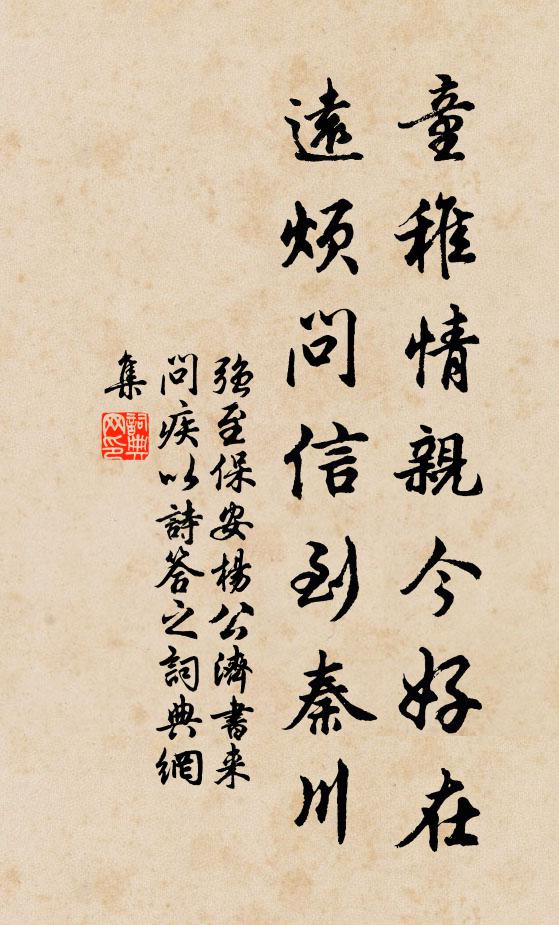 童稚情親今好在
遠煩問信到秦川
強至保安楊公濟書来
問疾以詩答之詞典網
集
詞典
网印